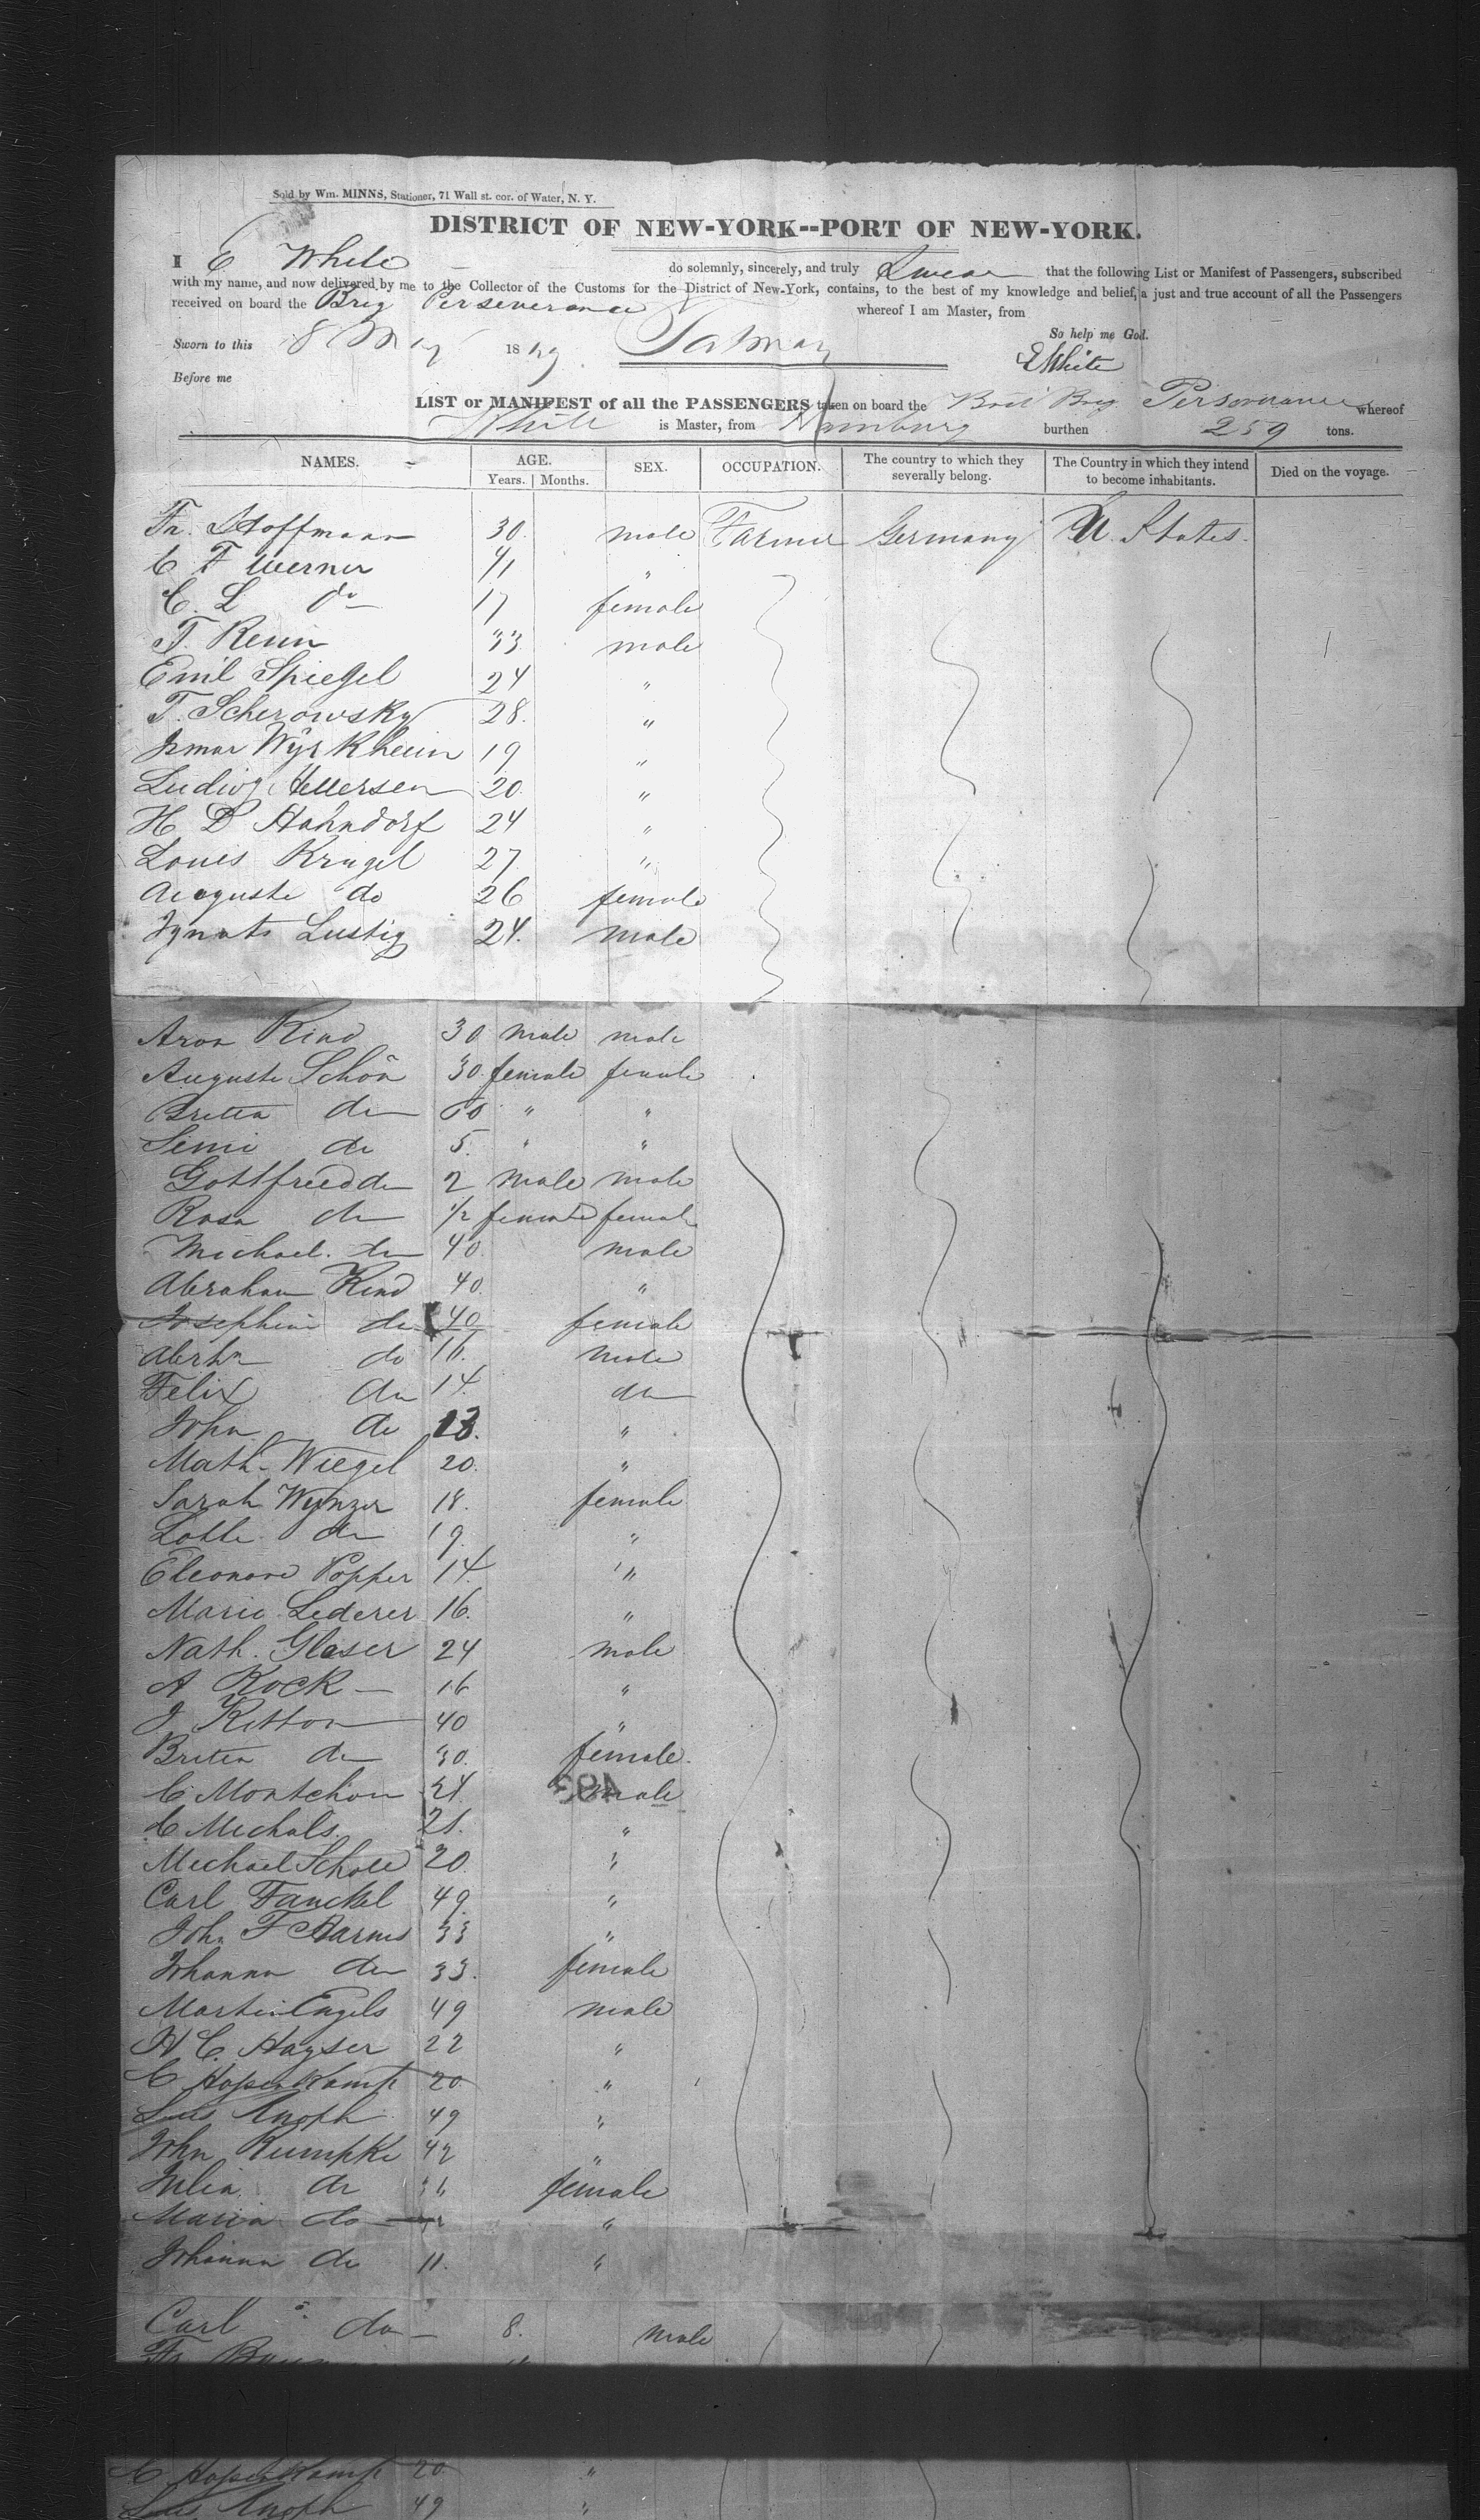 Sold by Wm. MINNS, Stationer, 71 Wall st. cor. of Water, N. Y.
DISTRICT OF NEW-YORK--PORT OF NEW-YORK.
I E White do solemnly, sincerely, and truly Swear that the following List or Manifest of Passengers, subscribed
with my name, and now delivered by me to the Collector of the Customs for the District of New-York, contains, to the best of my knowledge and belief, a just and true account of all the Passengers
received on board the Brig Perseverance whereof I am Master, from
So help me God.
Sworn to this 8 May 1849
EWhite
Before me
LIST or MANIFEST of all the PASSENGERS taken on board the Brit Brig Perseverance whereof
White is Master, from Hamburg burthen 259 tons.
NAMES. AGE. Years. Months. SEX. OCCUPATION. The country to which they severally belong. The Country in which they intend to become inhabitants. Died on the voyage.
Fr. Hoffmann 30. male Farmer Germany U. States.
C F Werner 41 "
C. L do 17 female
F. 33 male
Emil Spiegel 24 "
F. Scherowsky 28. "
19 "
Ludwig 20. "
H D Hahndorf 24 "
Loues Krugel 27. "
Auguste do 26 female
Ignats Lustig 24. male
Aron Kind 30 male male
Auguste Schön 30. female female
Britta do " "
Semi do 5. " "
Gottfried do 2 male male
Rosa do 1/2 female female
Michael. do 40. male
Abraham Kind 40. "
Josephine do 40 female
do 16. male
Felix do 14. do
John do 13. "
Math. Wiegel 20. "
Sarah Wynzer 18. female
Lotte do 19. "
Eleonore Popper 14 "
Marie Lederer 16. "
Nath. Glaser 24 male
A Kock 16 "
J. 40 "
Britta do 30. female.
C 24. male
C Michals. 21. "
Michael 20. "
Carl Fanckel 49. "
John F Harms 33 "
Johanna do 33. female
Martin Engels 49 male
H C. Hayser 22 "
C 20. "
Knoph 49 "
John Rumpke 42 "
Julia do 36 female
Maria do "
Johanna do 11. "
Carl do 8. male
Fr
C 20. "
Knoph 49 "